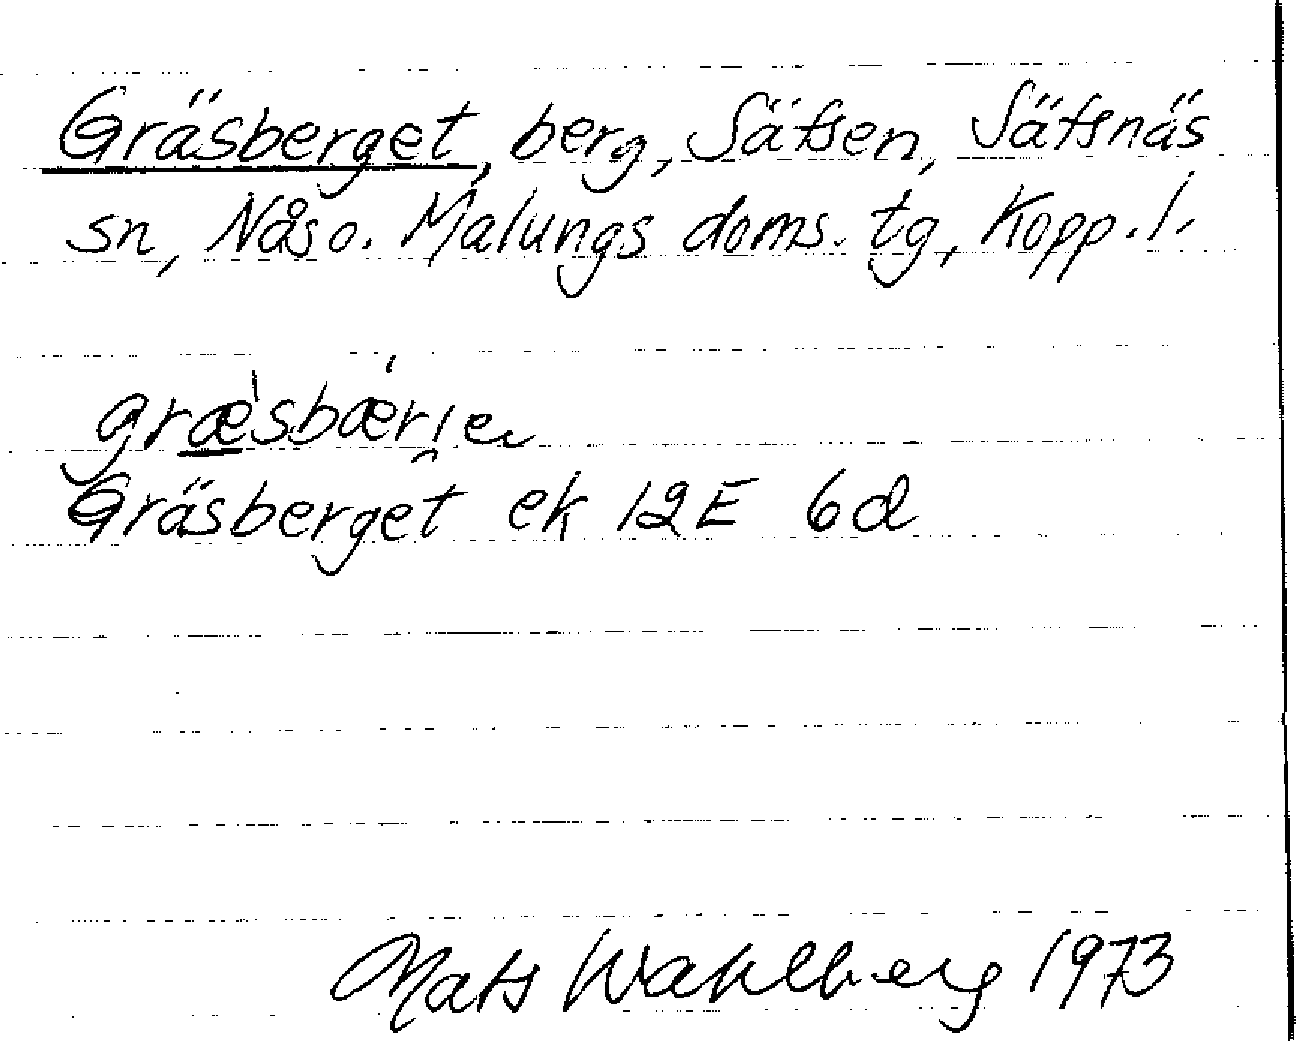 Gräsberget, berg, Sätsen, Sätsnäs
sn, Nås o. Malungs doms. tg, Kopp. l.
græ̱̀sbǽri̯eɴ
Gräsberget ek 12E 6d
Mats Wahlberg 1973